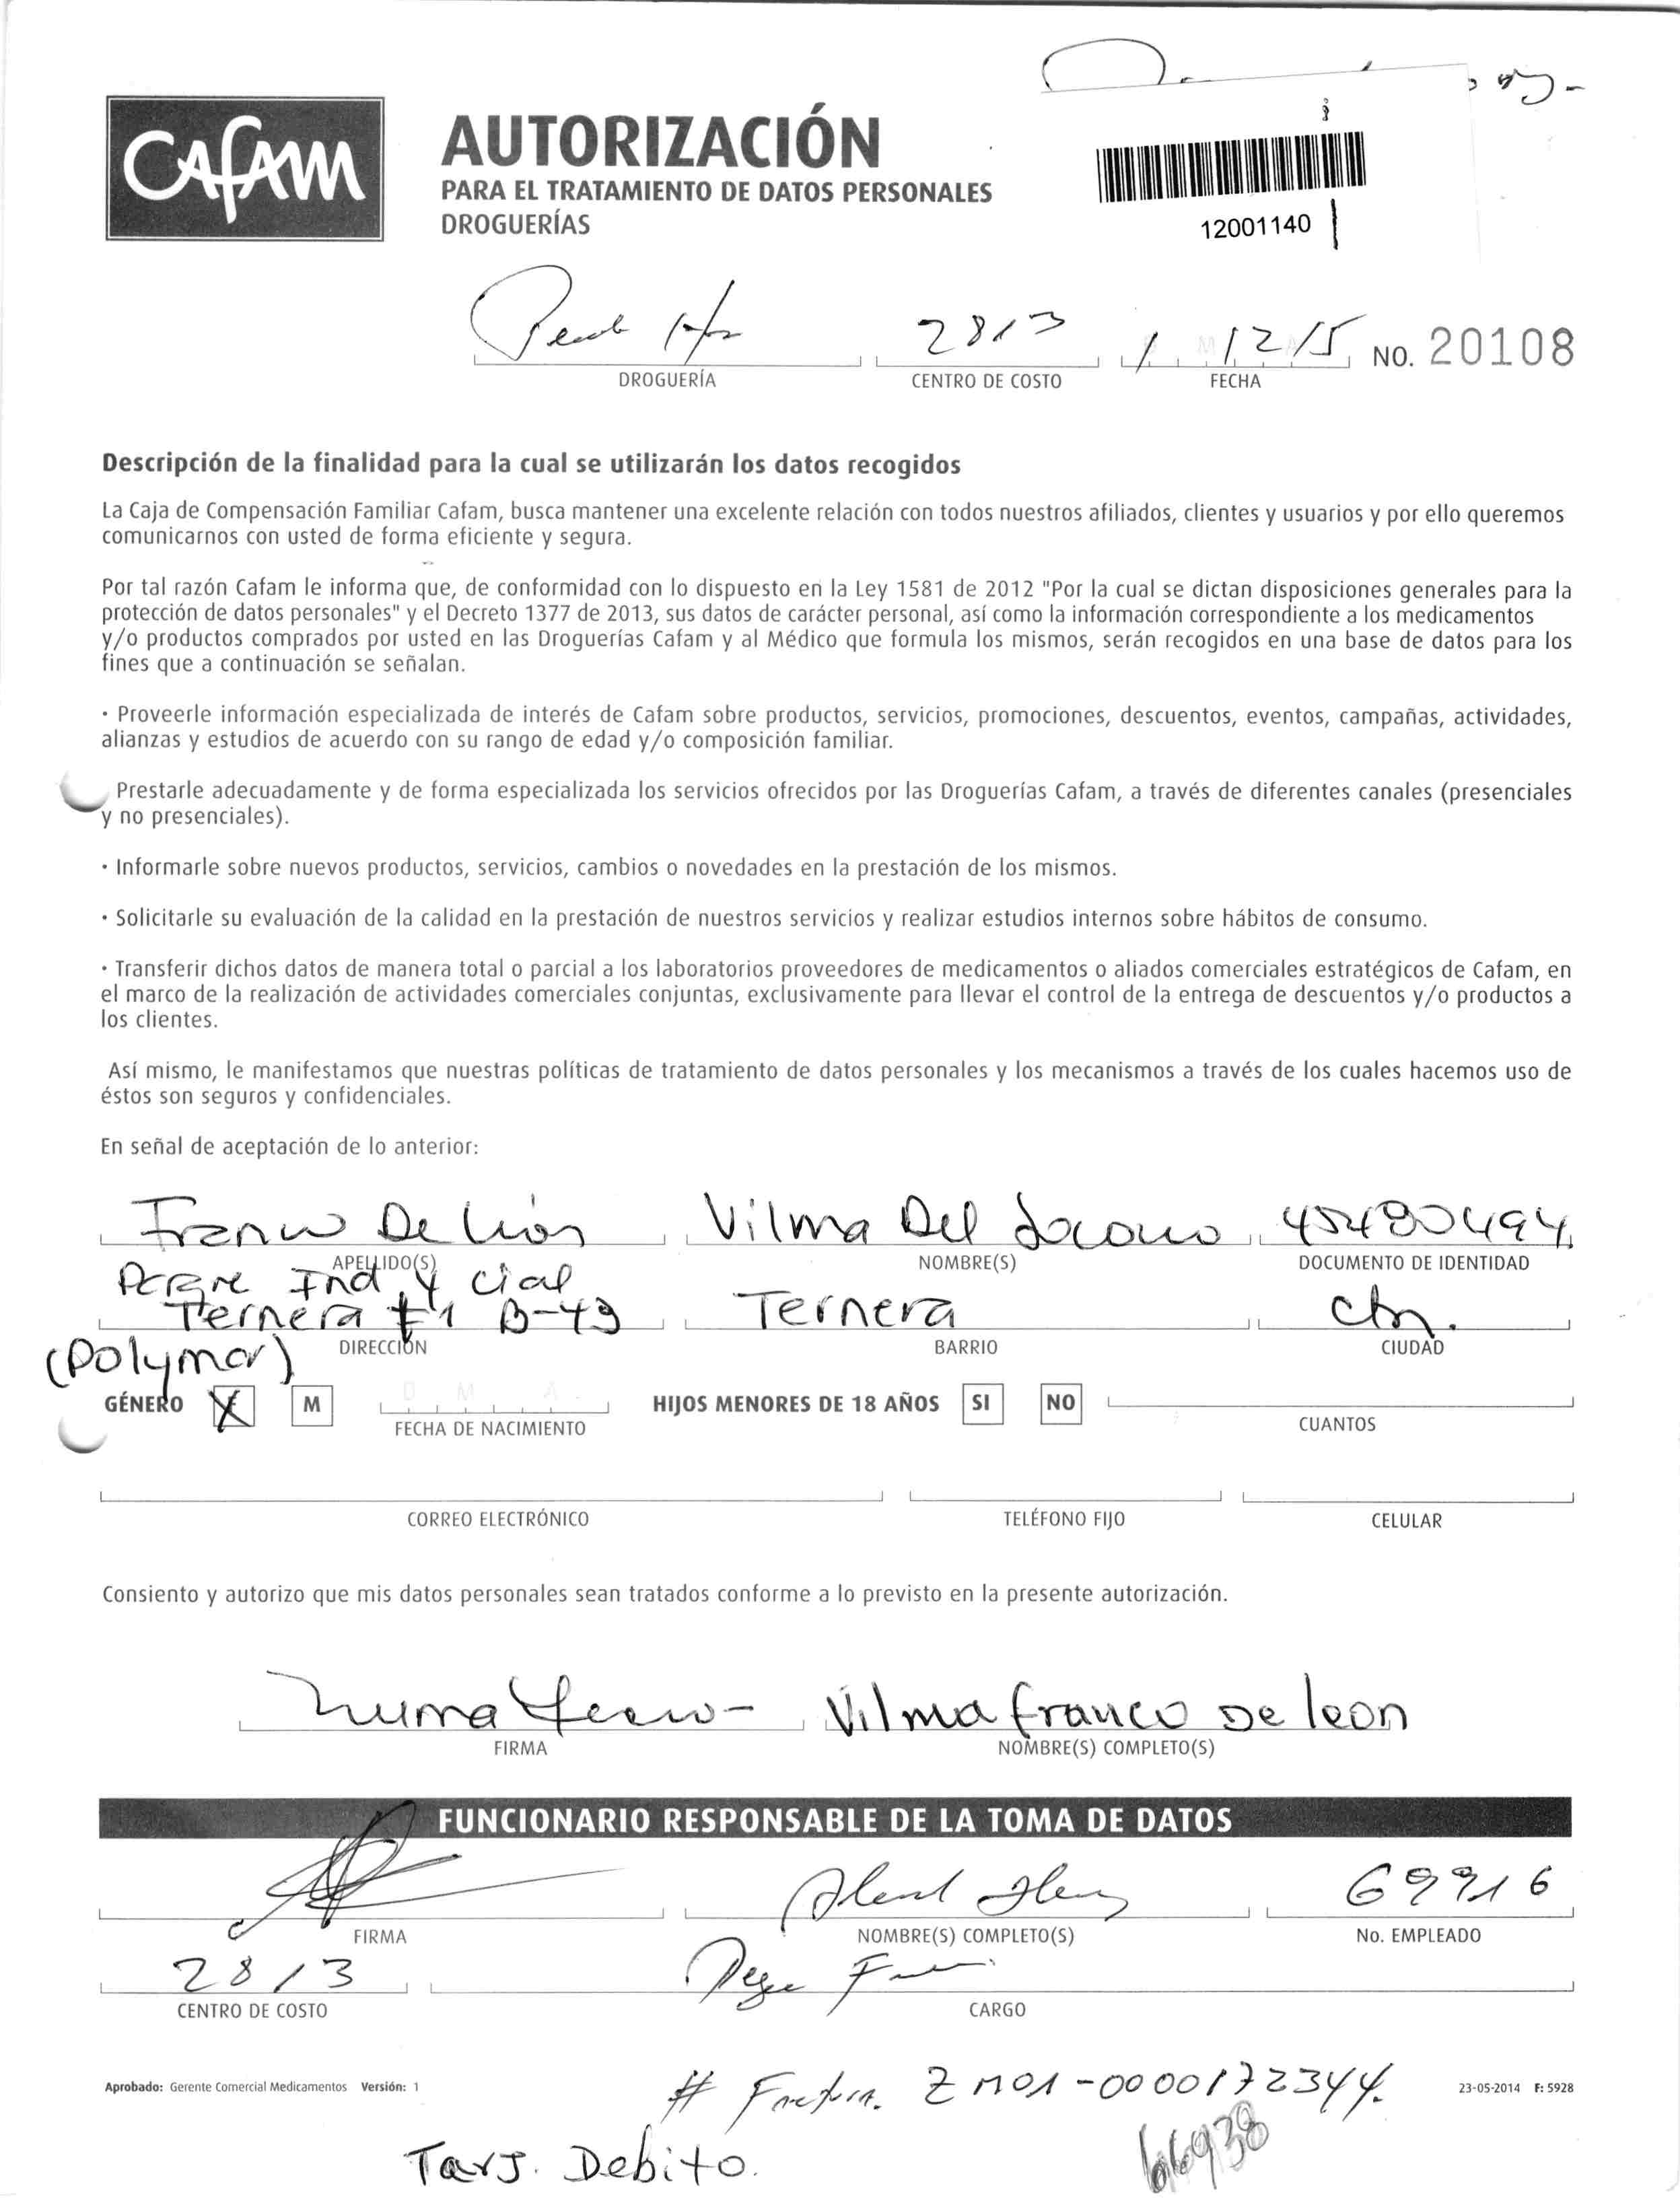 CAFAM
AUTORIZACIÓN
PARA EL TRATAMIENTO DE DATOS PERSONALES
DROGUERÍAS
12001140
2813 1 12/15 NO. 20108
DROGUERÍA CENTRO DE COSTO FECHA
Descripción de la finalidad para la cual se utilizarán los datos recogidos
La Caja de Compensación Familiar Cafam, busca mantener una excelente relación con todos nuestros afiliados, clientes y usuarios y por ello queremos
comunicarnos con usted de forma eficiente y segura.
Por tal razón Cafam le informa que, de conformidad con lo dispuesto en la Ley 1581 de 2012 "Por la cual se dictan disposiciones generales para la
protección de datos personales" y el Decreto 1377 de 2013, sus datos de carácter personal, así como la información correspondiente a los medicamentos
y/o productos comprados por usted en las Droguerías Cafam y al Médico que formula los mismos, serán recogidos en una base de datos para los
fines que a continuación se señalan.
· Proveerle información especializada de interés de Cafam sobre productos, servicios, promociones, descuentos, eventos, campañas, actividades,
alianzas y estudios de acuerdo con su rango de edad y/o composición familiar.
Prestarle adecuadamente y de forma especializada los servicios ofrecidos por las Droguerías Cafam, a través de diferentes canales (presenciales
y no presenciales).
· Informarle sobre nuevos productos, servicios, cambios o novedades en la prestación de los mismos.
· Solicitarle su evaluación de la calidad en la prestación de nuestros servicios y realizar estudios internos sobre hábitos de consumo.
· Transferir dichos datos de manera total o parcial a los laboratorios proveedores de medicamentos o aliados comerciales estratégicos de Cafam, en
el marco de la realización de actividades comerciales conjuntas, exclusivamente para llevar el control de la entrega de descuentos y/o productos a
los clientes.
Así mismo, le manifestamos que nuestras políticas de tratamiento de datos personales y los mecanismos a través de los cuales hacemos uso de
éstos son seguros y confidenciales.
En señal de aceptación de lo anterior:
Franco De León Vilma Del Socorro 45480494
APELLIDO(S) NOMBRE(S) DOCUMENTO DE IDENTIDAD
Parque Ind y cial
Ternera #1 B-49 Ternera Ctn.
DIRECCIÓN BARRIO CIUDAD
(Polymar)
GÉNERO X M D M A HIJOS MENORES DE 18 AÑOS SI NO
FECHA DE NACIMIENTO CUANTOS
CORREO ELECTRÓNICO TELÉFONO FIJO CELULAR
Consiento y autorizo que mis datos personales sean tratados conforme a lo previsto en la presente autorización.
Vilma Franco De leon
FIRMA NOMBRE(S) COMPLETO(S)
FUNCIONARIO RESPONSABLE DE LA TOMA DE DATOS
69916
FIRMA NOMBRE(S) COMPLETO(S) No. EMPLEADO
2813
CENTRO DE COSTO CARGO
Aprobado: Gerente Comercial Medicamentos Versión: 1
# Factura. ZM01-0000172344.
23-05-2014 F: 5928
66938
Tarj. Debito.